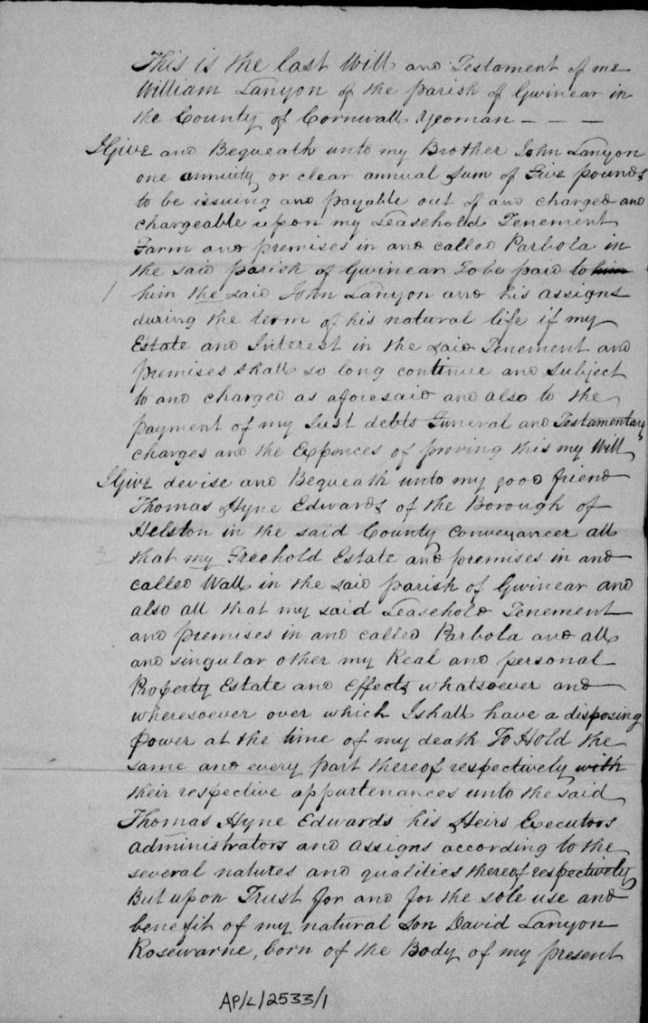 This is the last Will and Testament of me
William Lanyon of the parish of Gwinear in
the County of Cornwall Yeoman - - -
I Give and Bequeath unto my Brother John Lanyon
one annuity or clear annual Sum of Five pounds
to be issuing and payable out of and charged and
chargeable upon my Leasehold Tenement
Farm and premises in and called Parbola in
the said parish of Gwinear To be paid to him
him the said John Lanyon and his assigns
during the term of his natural life if my
Estate and Interest in the said Tenement and
premises shall so long continue and Subject
to and charged as aforesaid and also to the
payment of my Just debts Funeral and Testamentary
charges and the Expences of proving this my Will
I Give devise and Bequeath unto my good friend
Thomas Hyne Edwards of the Borough of
Helston in the said County Conveyancer all
that my Freehold Estate and premises in and
called Wall in the said parish of Gwinear and
also all that my said Leasehold Tenement
and premises in and called Parbola and all
and singular other my Real and personal
Property Estate and Effects whatsoever and
wheresoever over which I shall have a disposing
Power at the time of my death To Hold the
same and every part thereof respectively with
their respective appurtenances unto the said
Thomas Hyne Edwards his Heirs Executors
administrators and assigns according to the
several natures and qualities thereof respectively
But upon Trust for and for the sole use and
benefit of my natural Son David Lanyon
Rosewarne, born of the Body of my present
AP/L/2533/1